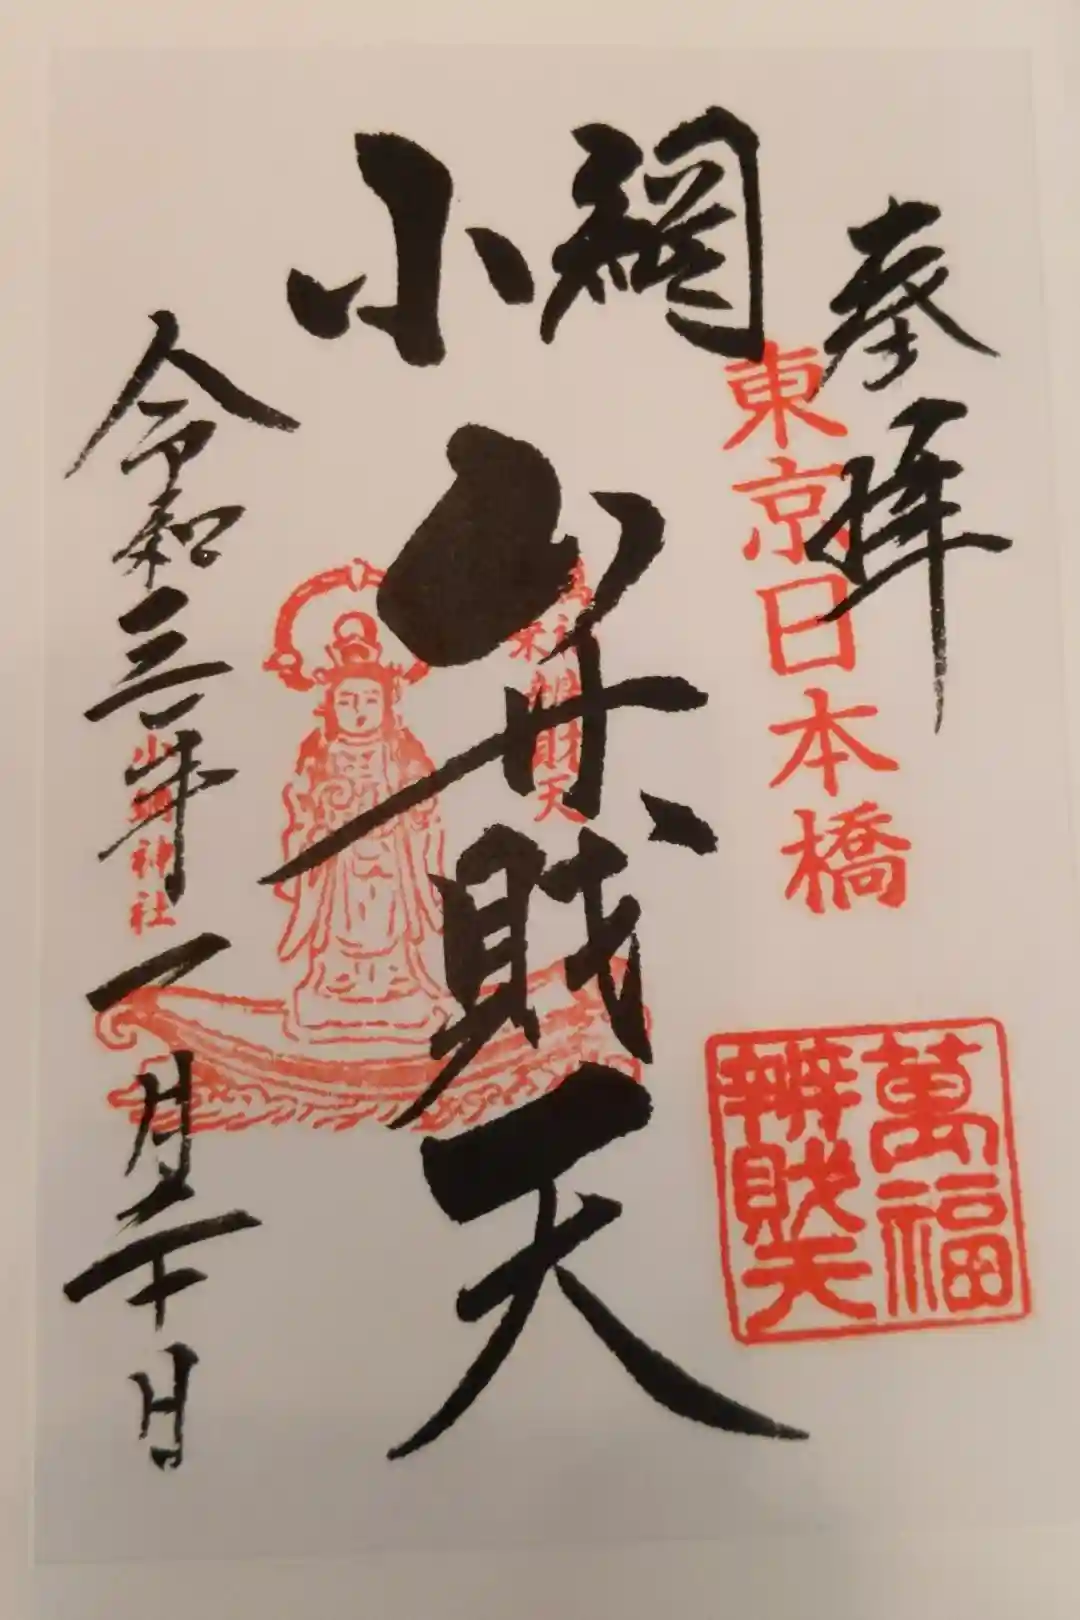 奉拝
東京日本橋
小網
弁財天
萬福
辨財天
財天
令和三年一月二十日
小網神社